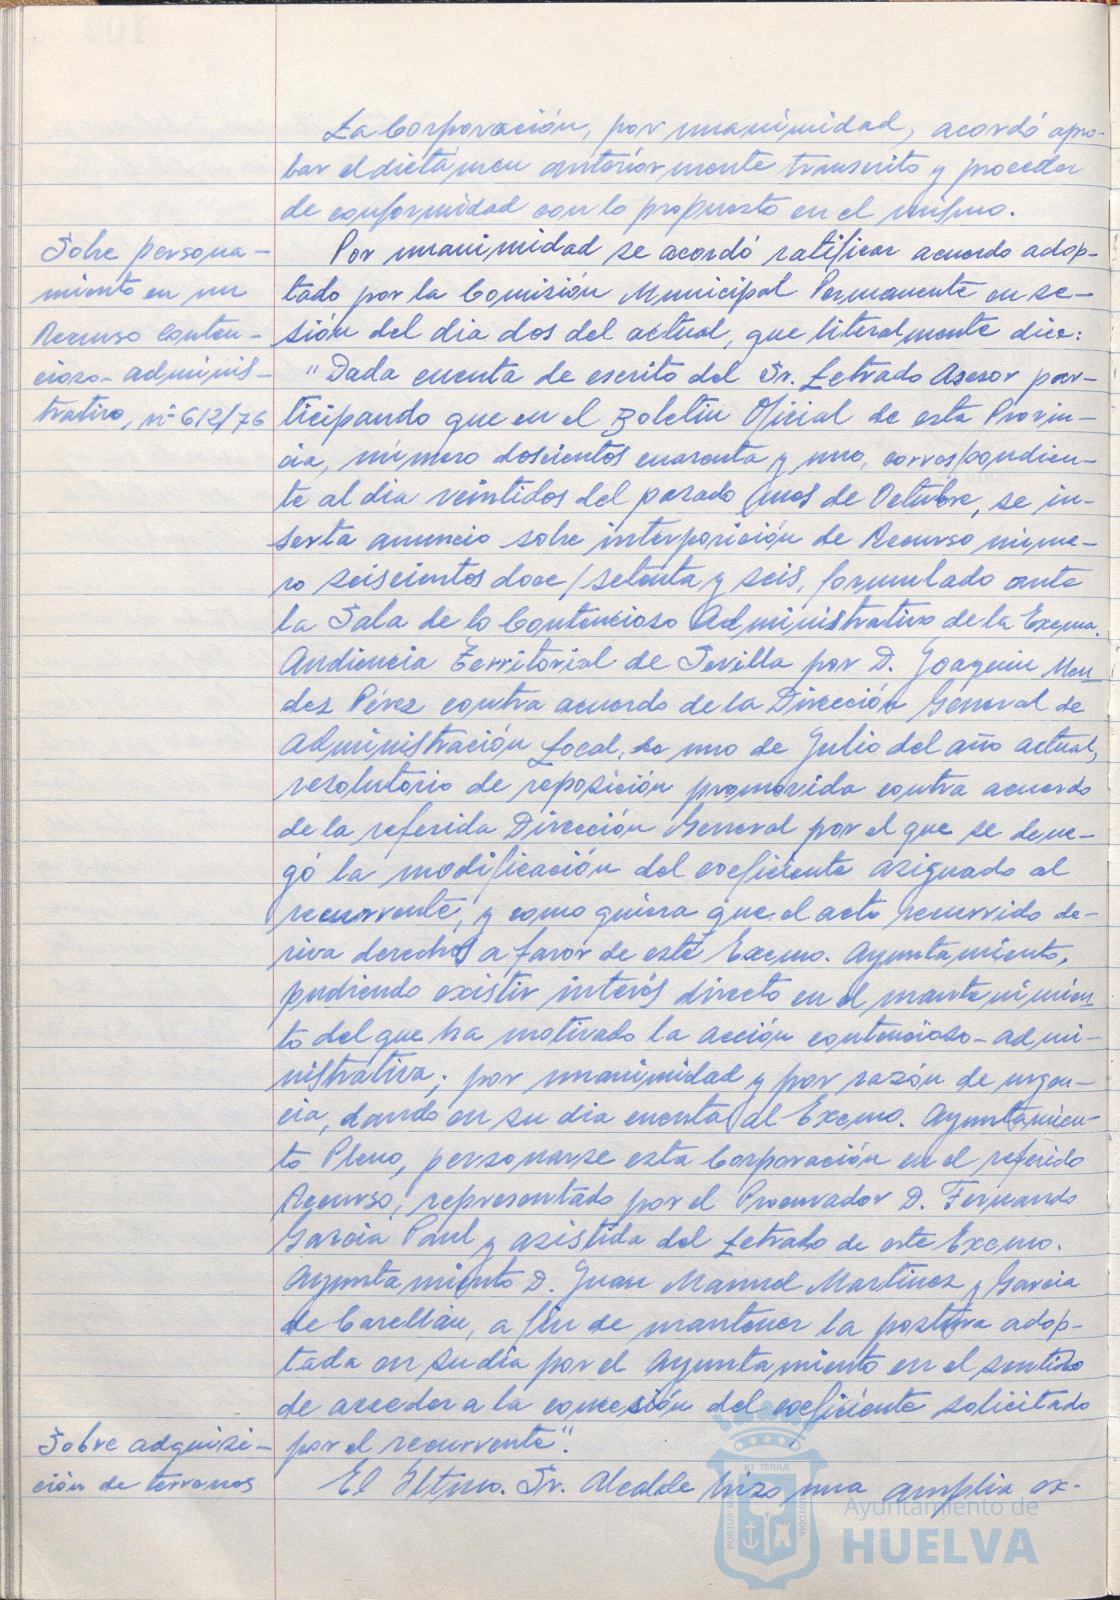 La Corporación, por unanimidad, acordó apro-
bar el dictámen anteriormente transcrito y proceder
de conformidad con lo propuesto en el mismo.
Sobre persona-
miento en un
Recurso conten-
cioso-adminis-
trativo, nº 612/76
Por unanimidad se acordó ratificar acuerdo adop-
tado por la Comisión Municipal Permanente en se-
sión del dia dos del actual, que literalmente dice:
"Dada cuenta de escrito del Sr. Letrado Asesor par-
ticipando que en el Boletin Oficial de esta Provin-
cia, número doscientos cuarenta y uno, correspondien-
te al dia veintidos del pasado mes de Octubre, se in-
serta anuncio sobre interposición de Recurso núme-
ro seiscientos doce/setenta y seis, formulado ante
la Sala de lo Contencioso Administrativo de la Excma.
Audiencia Territorial de Sevilla por D. Joaquin Men
dez Pérez contra acuerdo de la Dirección General de
Administración Local, de uno de Julio del año actual,
resolutorio de reposición promovida contra acuerdo
de la referida Dirección General por el que se dene-
gó la modificación del coeficiente asignado al
recurrente, y como quiera que el acto recurrido de-
riva derechos a favor de este Excmo. Ayuntamiento,
pudiendo existir interés directo en el mantenimien
to del que ha motivado la acción contencioso-admi-
nistrativa; por unanimidad y por razón de urgen-
cia, dando en su dia cuenta al Excmo. Ayuntamien-
to Pleno, personarse esta Corporación en el referido
Recurso, representado por el Procurador D. Fernando
Garcia Paul y asistida del Letrado de este Excmo.
Ayuntamiento D. Juan Manuel Martinez y Garcia
de Casellán, a fin de mantener la postura adop-
tada en su dia por el Ayuntamiento en el sentido
de acceder a la concesión del coeficiente solicitado
por el recurrente".
Sobre adquisi-
ción de terrenos
El Iltmo. Sr. Alcalde hizo una amplia ex-
ET TERRÆ
PORTUS
CUSTODIA
Ayuntamiento de
HUELVA